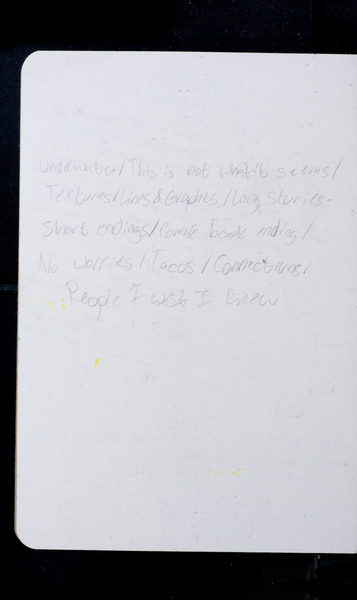 Underwater/This is not what it seems/
Textures/Lines & Graphs/Long Stories-
short endings/Comic book ending/
No worries/Tacos/Connections/
People I wish I knew